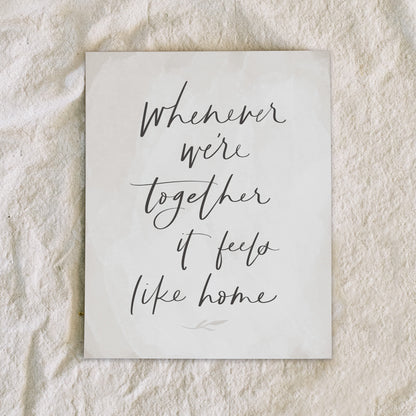 Whenever
we're
together
it feels
like home